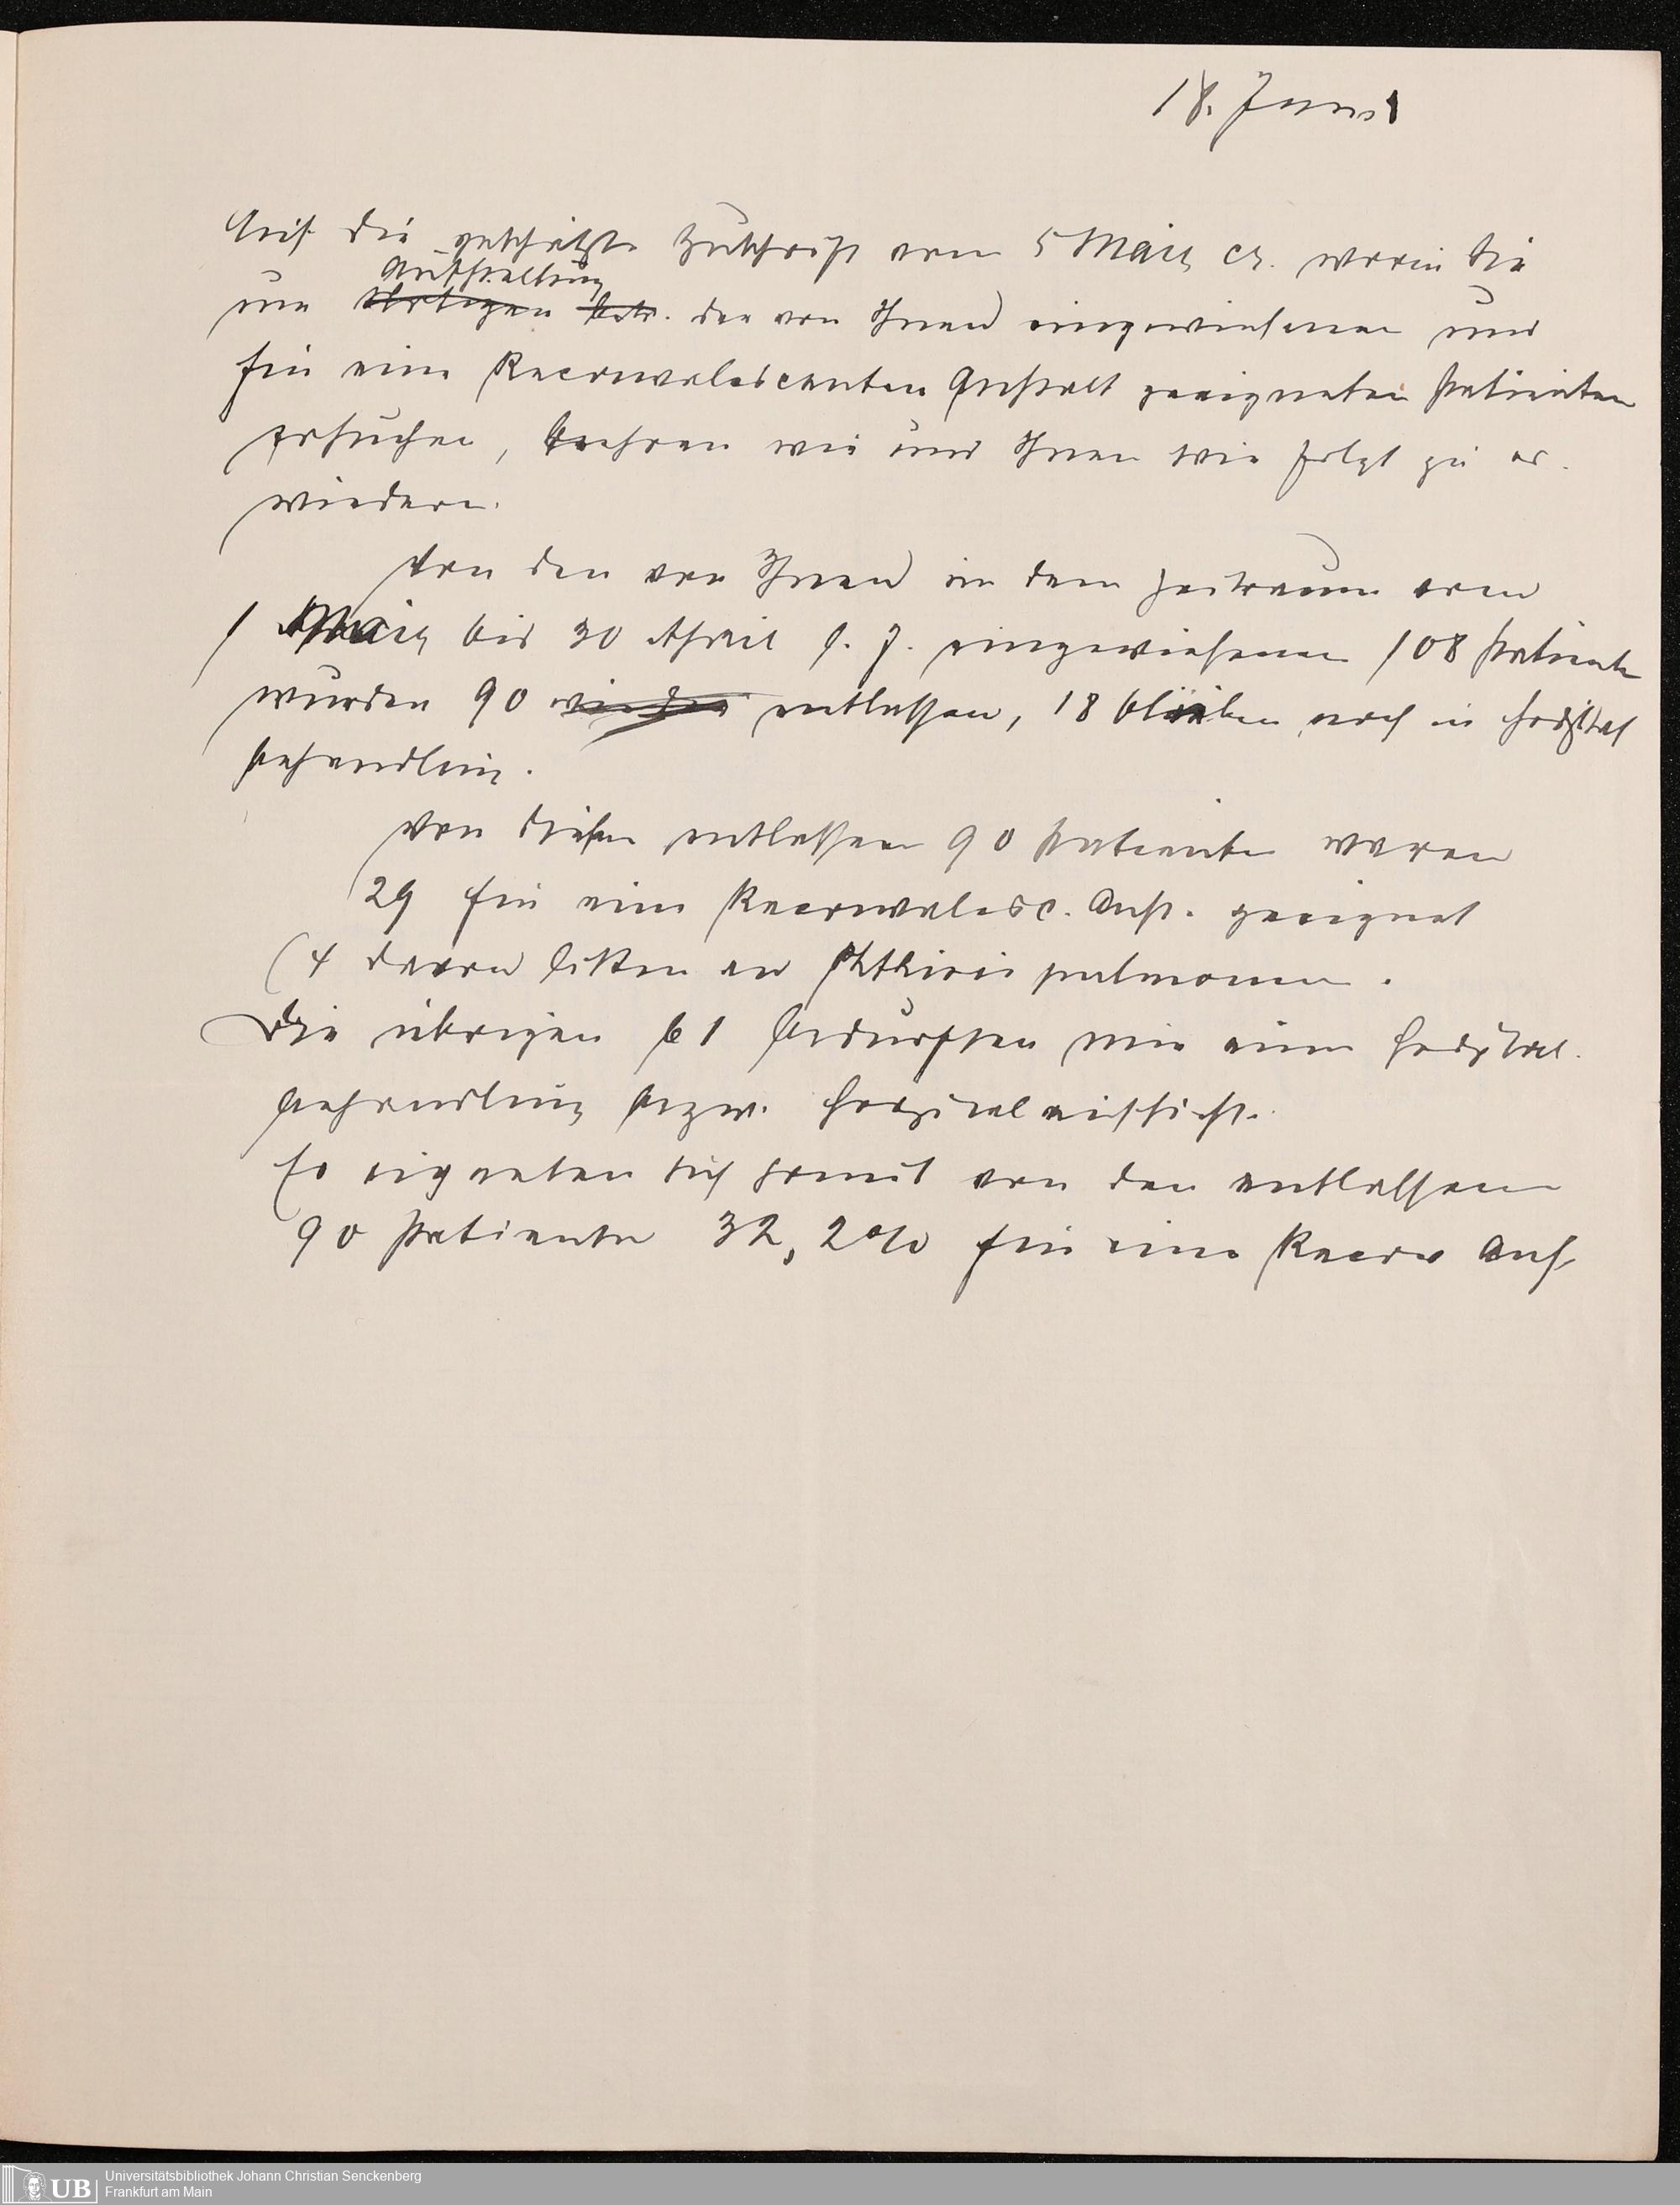 18. Juni
Auf die geschätzte Zuschrift vom 5 März cr. worin Sie
Aufstellung
um der von Ihnen eingewiesenen und
für eine Reconvalescenten Anstalt geeigneten Patienten
ersuchen, beehren wir uns Ihnen wie folgt zu er-
wiedern.
Von den von Ihnen in dem Zeitraum vom
1 März bis 30 April l. J. eingewiesenen 108 Patienten
wurden 90 entlassen, 18 blieben noch in Hospital
behandlung.
Von diesen entlassenen 90 Patienten waren
29 für eine Reconvalesc. Anst. geeignet
(4 davon litten an Phthisis pulmonum.
Die übrigen 61 bedurften nur einer Hospital.
behandlung bezw. Hospitalaufsicht.
Es eigneten sich somit von den entlassenen
90 Patienten 32,2% für eine Reconv Anst
UB Universitätsbibliothek Johann Christian Senckenberg
Frankfurt am Main